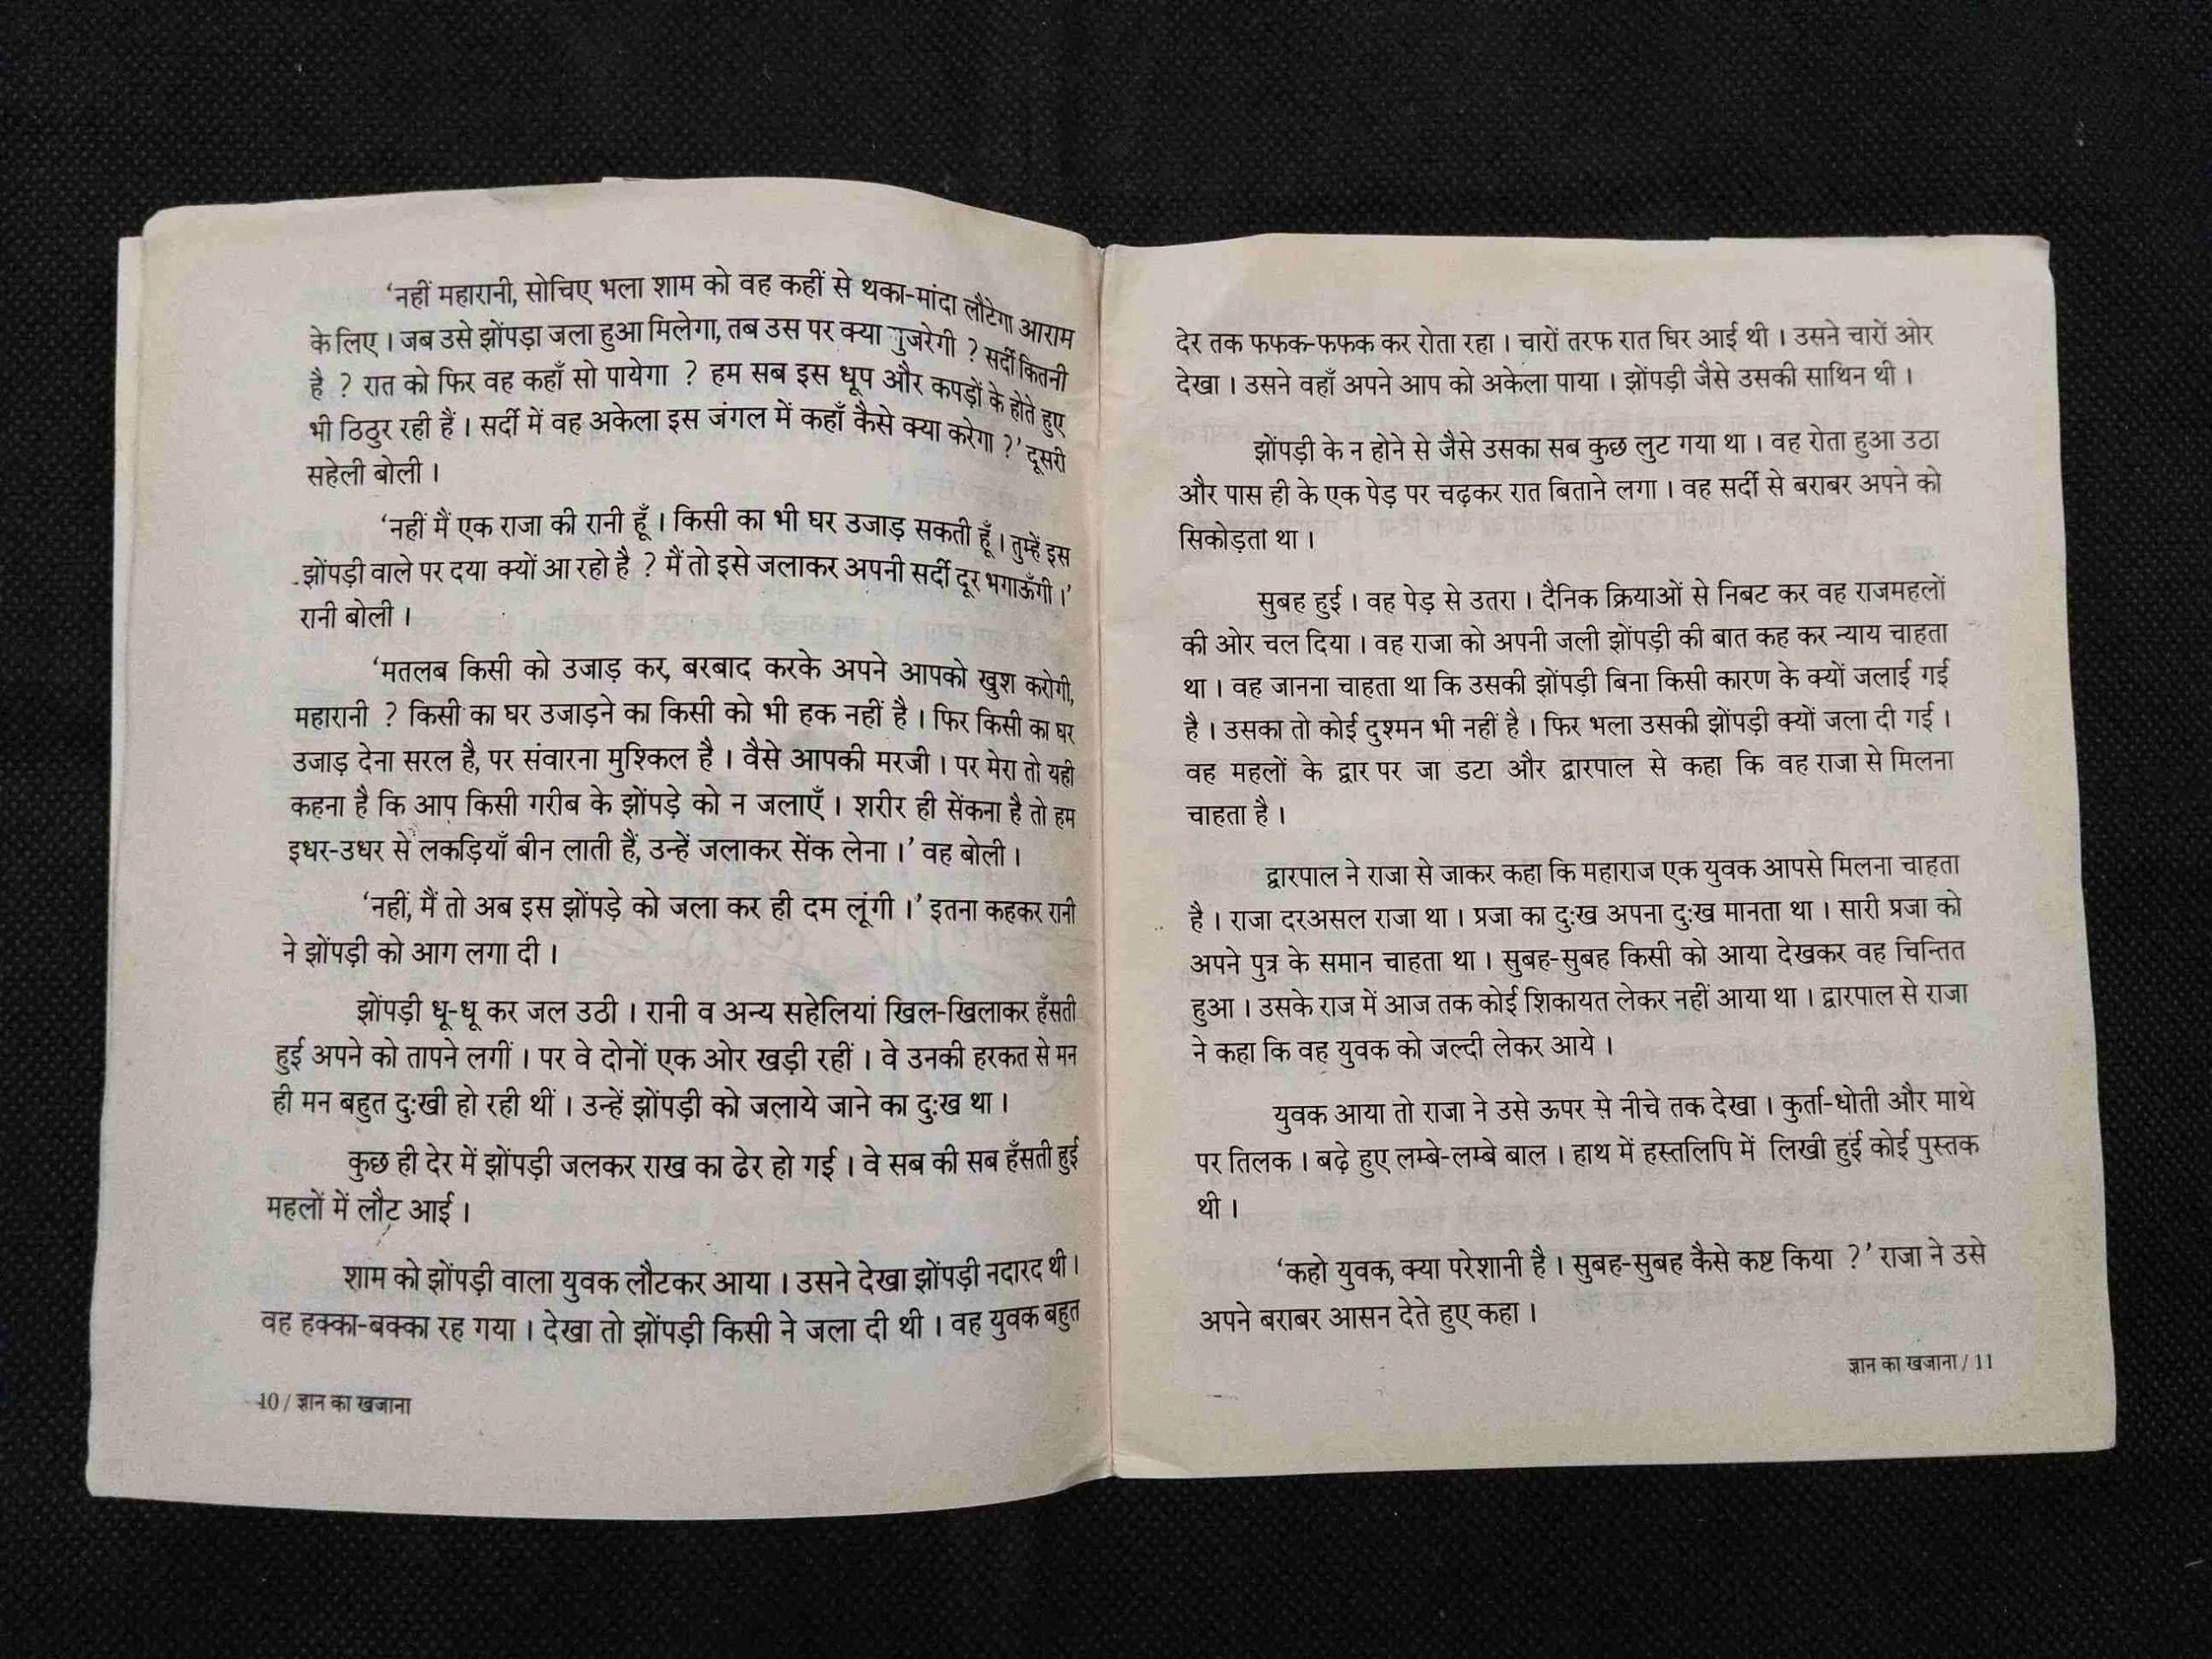 ‘नहीं महारानी, सोचिए भला शाम को वह कहीं से थका-मांदा लौटेगा आराम
के लिए । जब उसे झोंपड़ा जला हुआ मिलेगा, तब उस पर क्या गुजरेगी ? सर्दी कितनी
है ? रात को फिर वह कहाँ सो पायेगा ? हम सब इस धूप और कपड़ों के होते हुए
भी ठिठुर रही हैं । सर्दी में वह अकेला इस जंगल में कहाँ कैसे क्या करेगा ?’ दूसरी
सहेली बोली ।
‘नहीं मैं एक राजा की रानी हूँ । किसी का भी घर उजाड़ सकती हूँ । तुम्हें इस
झोंपड़ी वाले पर दया क्यों आ रहो है ? मैं तो इसे जलाकर अपनी सर्दी दूर भगाऊँगी ।’
रानी बोली ।
‘मतलब किसी को उजाड़ कर, बरबाद करके अपने आपको खुश करोगी,
महारानी ? किसी का घर उजाड़ने का किसी को भी हक नहीं है । फिर किसी का घर
उजाड़ देना सरल है, पर संवारना मुश्किल है । वैसे आपकी मरजी । पर मेरा तो यही
कहना है कि आप किसी गरीब के झोंपड़े को न जलाएँ । शरीर ही सेंकना है तो हम
इधर-उधर से लकड़ियाँ बीन लाती हैं, उन्हें जलाकर सेंक लेना ।’ वह बोली ।
‘नहीं, मैं तो अब इस झोंपड़े को जला कर ही दम लूंगी ।’ इतना कहकर रानी
ने झोंपड़ी को आग लगा दी ।
झोंपड़ी धू-धू कर जल उठी । रानी व अन्य सहेलियां खिल-खिलाकर हँसती
हुई अपने को तापने लगीं । पर वे दोनों एक ओर खड़ी रहीं । वे उनकी हरकत से मन
ही मन बहुत दुःखी हो रही थीं । उन्हें झोंपड़ी को जलाये जाने का दुःख था ।
कुछ ही देर में झोंपड़ी जलकर राख का ढेर हो गई । वे सब की सब हँसती हुई
महलों में लौट आई ।
शाम को झोंपड़ी वाला युवक लौटकर आया । उसने देखा झोंपड़ी नदारद थी ।
वह हक्का-बक्का रह गया । देखा तो झोंपड़ी किसी ने जला दी थी । वह युवक बहुत
10 / ज्ञान का खजाना
देर तक फफक-फफक कर रोता रहा । चारों तरफ रात घिर आई थी । उसने चारों ओर
देखा । उसने वहाँ अपने आप को अकेला पाया । झोंपड़ी जैसे उसकी साथिन थी ।
झोंपड़ी के न होने से जैसे उसका सब कुछ लुट गया था । वह रोता हुआ उठा
और पास ही के एक पेड़ पर चढ़कर रात बिताने लगा । वह सर्दी से बराबर अपने को
सिकोड़ता था ।
सुबह हुई । वह पेड़ से उतरा । दैनिक क्रियाओं से निबट कर वह राजमहलों
की ओर चल दिया । वह राजा को अपनी जली झोंपड़ी की बात कह कर न्याय चाहता
था । वह जानना चाहता था कि उसकी झोंपड़ी बिना किसी कारण के क्यों जलाई गई
है । उसका तो कोई दुश्मन भी नहीं है । फिर भला उसकी झोंपड़ी क्यों जला दी गई ।
वह महलों के द्वार पर जा डटा और द्वारपाल से कहा कि वह राजा से मिलना
चाहता है ।
द्वारपाल ने राजा से जाकर कहा कि महाराज एक युवक आपसे मिलना चाहता
है । राजा दरअसल राजा था । प्रजा का दुःख अपना दुःख मानता था । सारी प्रजा को
अपने पुत्र के समान चाहता था । सुबह-सुबह किसी को आया देखकर वह चिन्तित
हुआ । उसके राज में आज तक कोई शिकायत लेकर नहीं आया था । द्वारपाल से राजा
ने कहा कि वह युवक को जल्दी लेकर आये ।
युवक आया तो राजा ने उसे ऊपर से नीचे तक देखा । कुर्ता-धोती और माथे
पर तिलक । बढ़े हुए लम्बे-लम्बे बाल । हाथ में हस्तलिपि में लिखी हुई कोई पुस्तक
थी ।
‘कहो युवक, क्या परेशानी है । सुबह-सुबह कैसे कष्ट किया ?’ राजा ने उसे
अपने बराबर आसन देते हुए कहा ।
ज्ञान का खजाना / 11